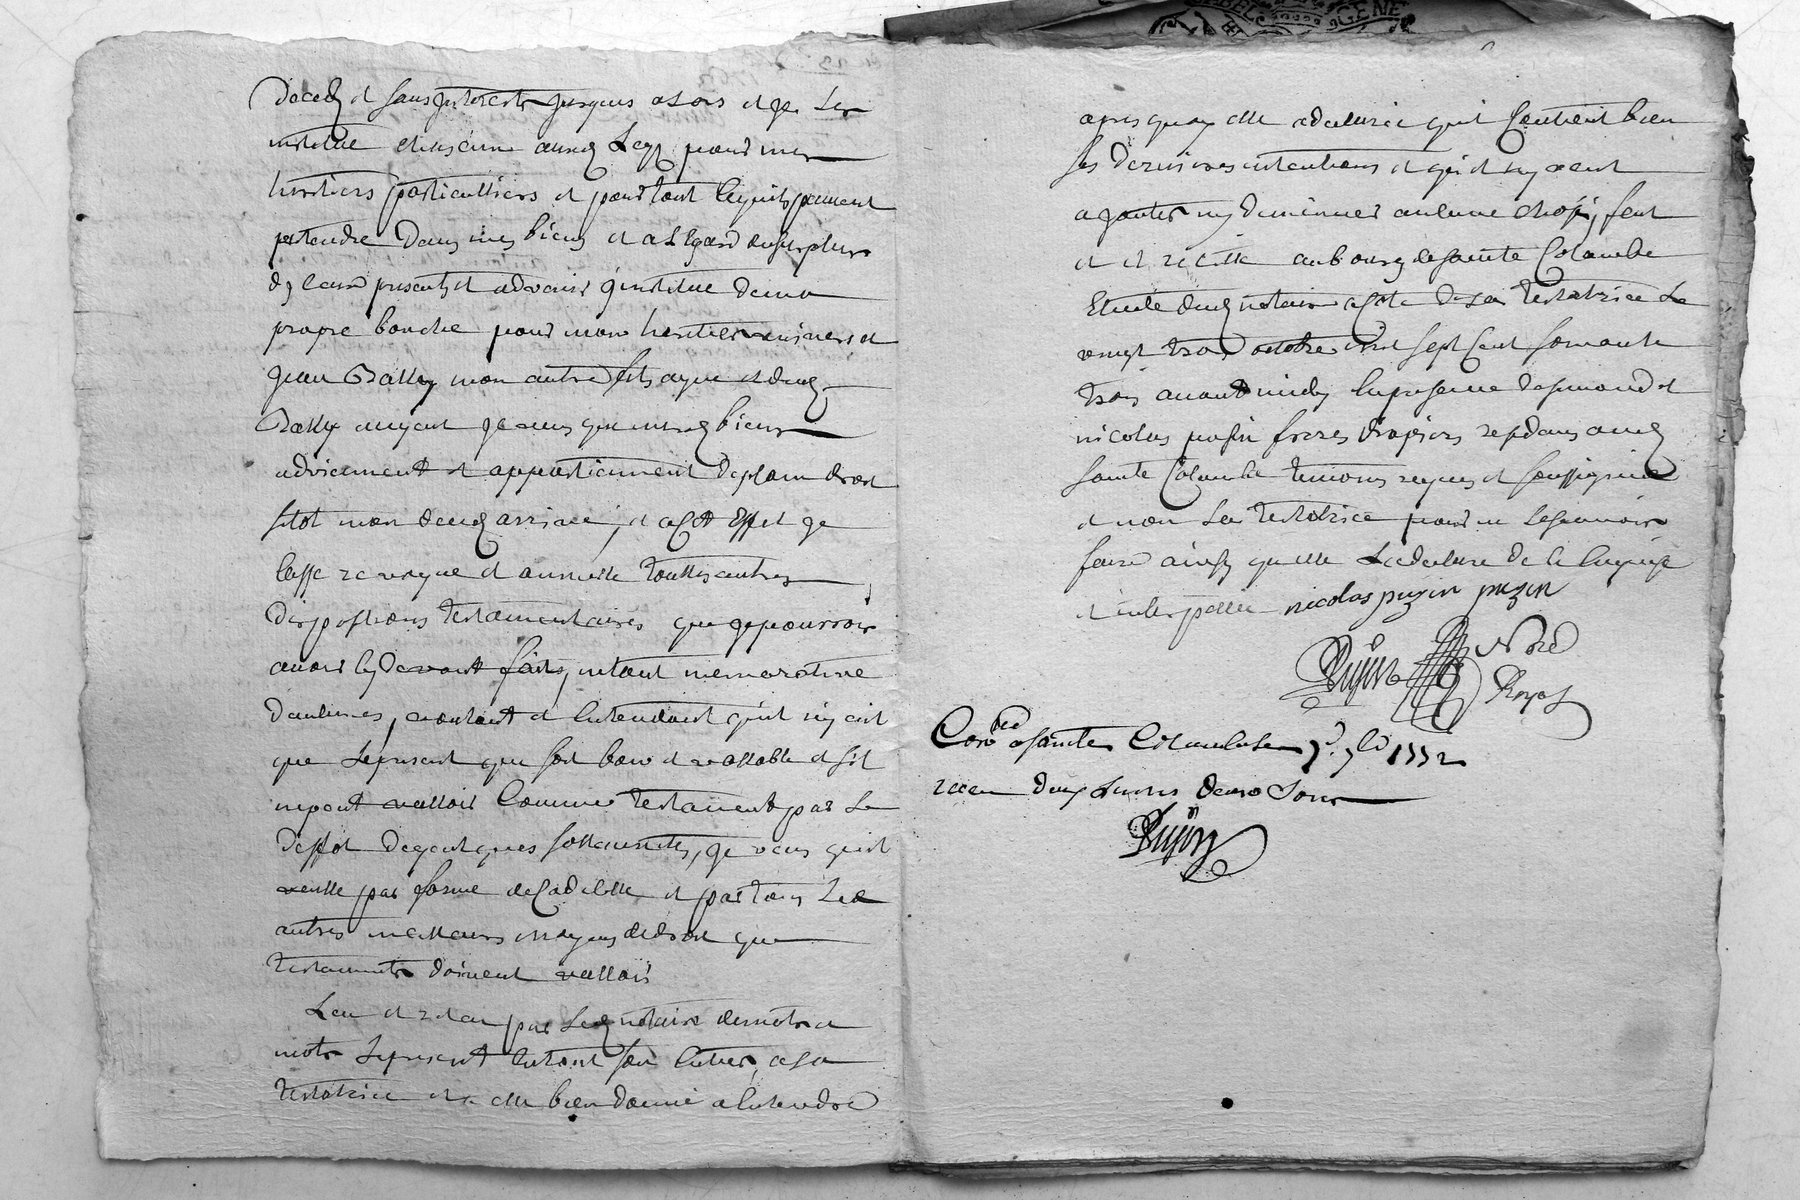 deced et sans interests jusques alors et que les
institue chascun auxd legs pour mes
heritiers particulliers et pour tout ce quils peuvent
pretendre dans mes biens et a l'Egard du surplus
diceux presents et advenir j'institue de ma
propre bouche pour mon heritier universel
Jean Bally mon autre fils ayné et dud
Bally auquel je veus que mesd biens
adviennent et appartiennent de plain droit
sitot mon deced arrivé, et a cet Effet je
casse revoque et annulle touttes autres
dispositions testamentaires que je pourrois
avoir cy devant faits, netant memorative
d'aulcunes, voulant et entendant quil n'y ait
que le present qui soit bon et vallable et sil
ne peut valloir comme testament par le
deffot de quelques sollannites, je veus quil
veuille par forme de Codicille et par tous les
autres meilleurs moyens de droit que
testaments doivent valloir
Leu et releu par led notaire de mot a
mot le present tout son entier, a la
testatrice et a elle bien donné a entendre
GENE
apres quoy elle a declaré quil contient bien
ses dernieres intentions et quil ny veut
ajouter ny diminuer aulcune chose, fait
et recitté au bourg de Sainte Colombe
Etude dud notaire a coté de la testatrice le
vingt trois octobre mil sept cent soixante
trois avant midy en presence de
nicolas puzin freres drapiers residans aud
Sainte Colombe temoins requis et soussignés
et non la testatrice pour ne le scavoir
faire ainsy quelle l'a declaré de ce enquise
et interpellée nicolas puzin puzin
Nore
Royal
Conlé a Sainte Colombe
receu douze sous